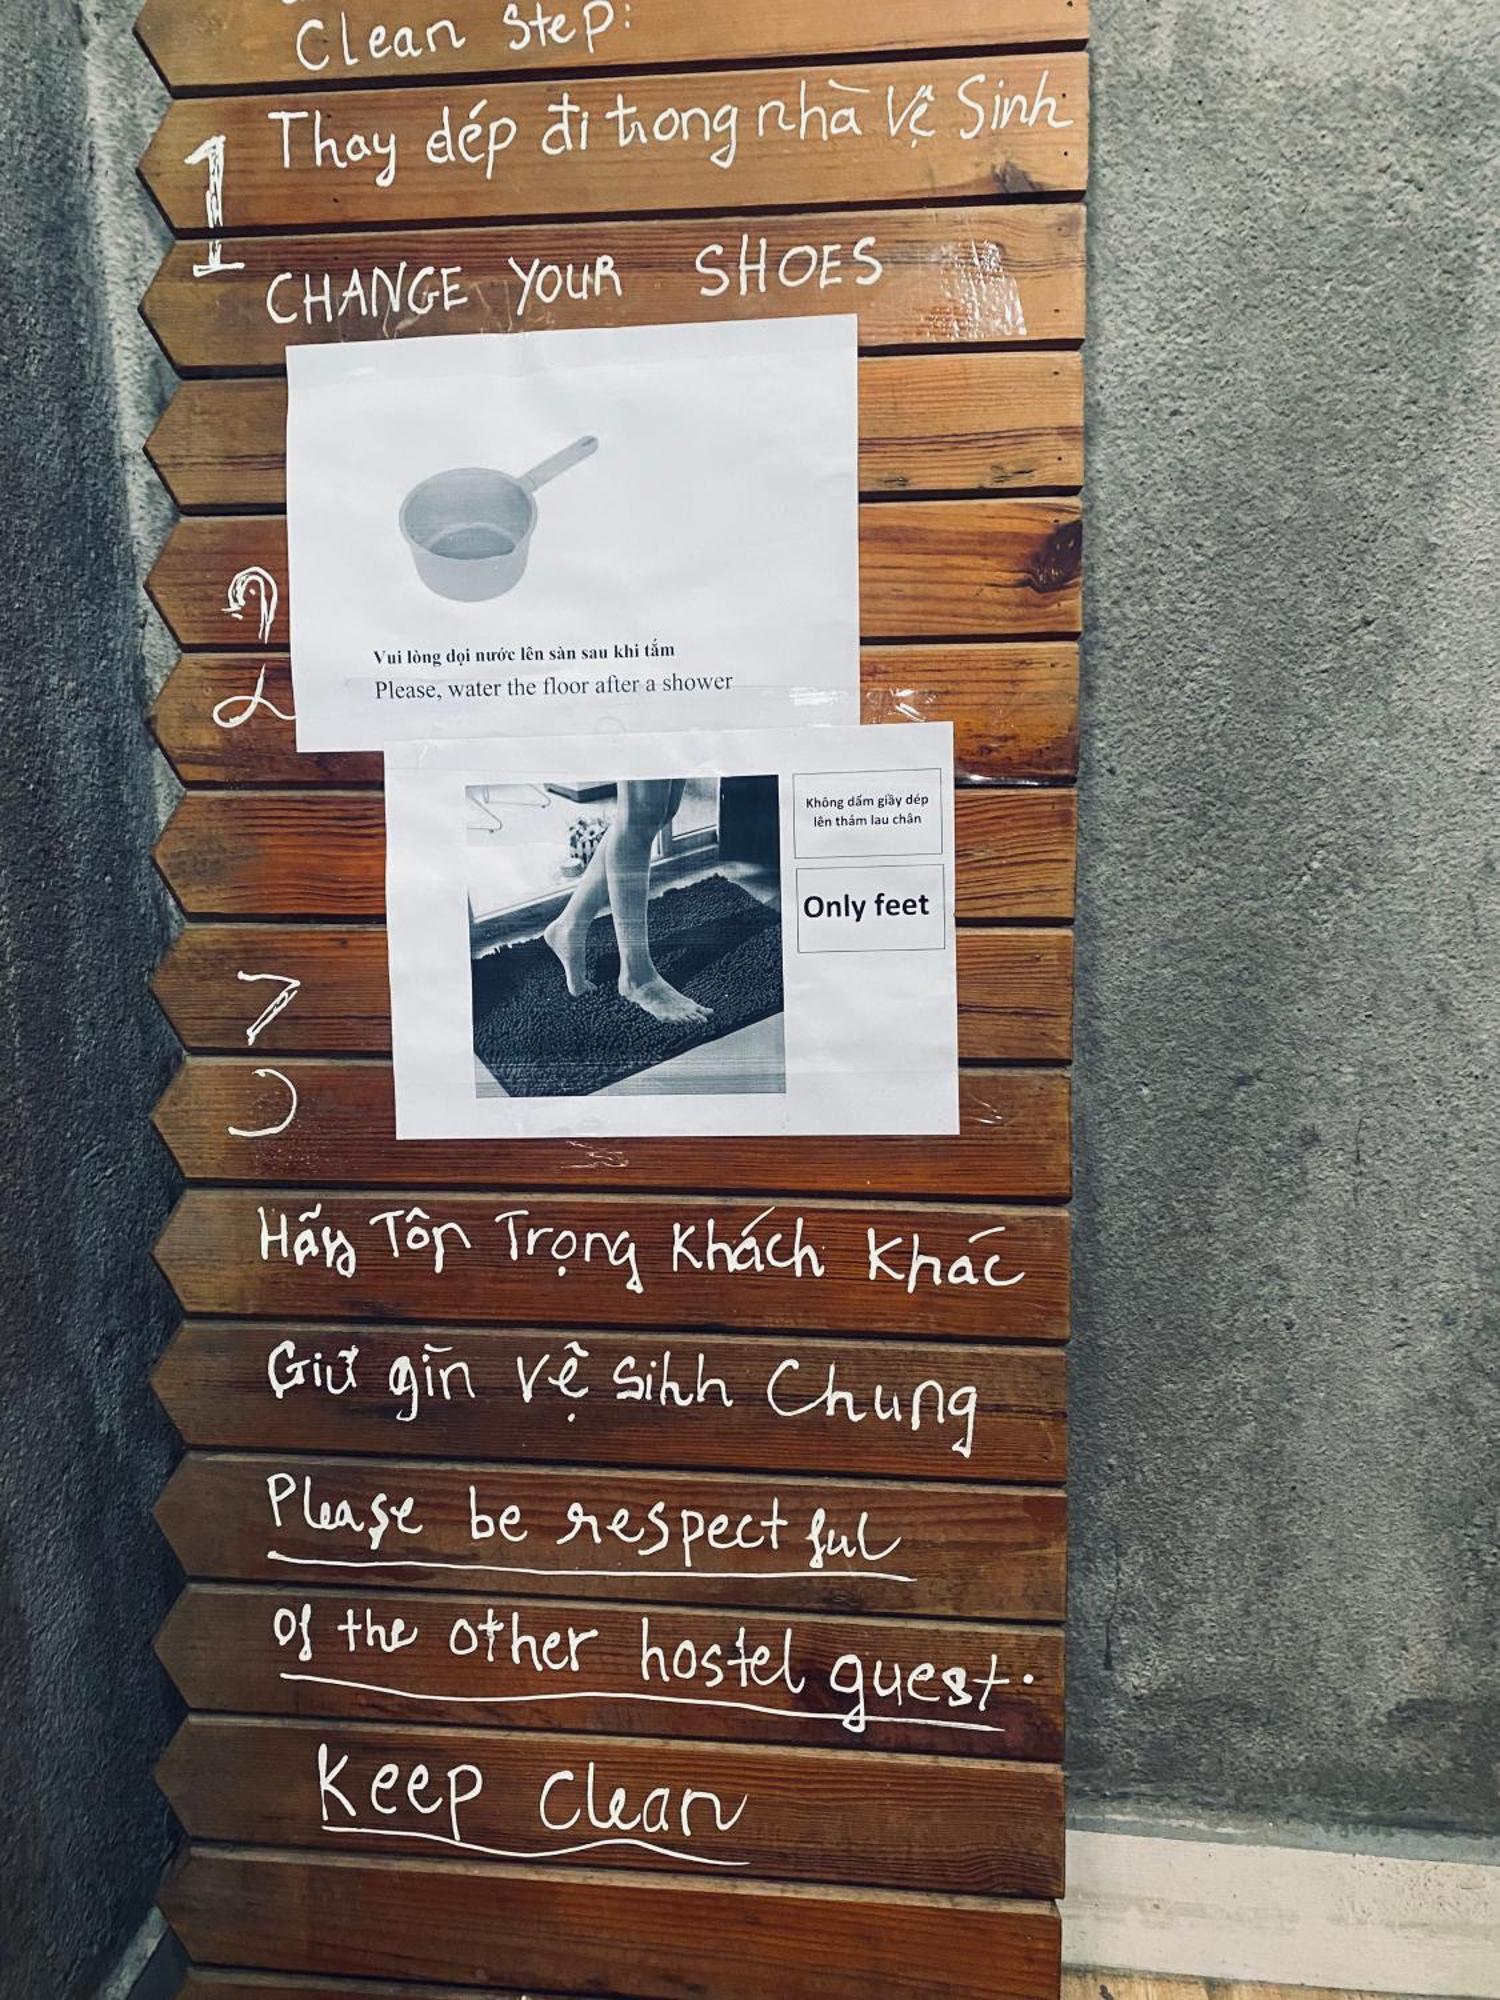 Clean Step:
1 Thay dép đi trong nhà Vệ Sinh
CHANGE YOUR SHOES
2
Vui lòng dọi nước lên sàn sau khi tắm
Please, water the floor after a shower
Không dẫm giầy dép
lên thảm lau chân
Only feet
3
Hãy Tôn Trọng Khách Khác
Giữ gìn Vệ Sinh Chung
Please be respectful
of the other hostel guest.
Keep Clean